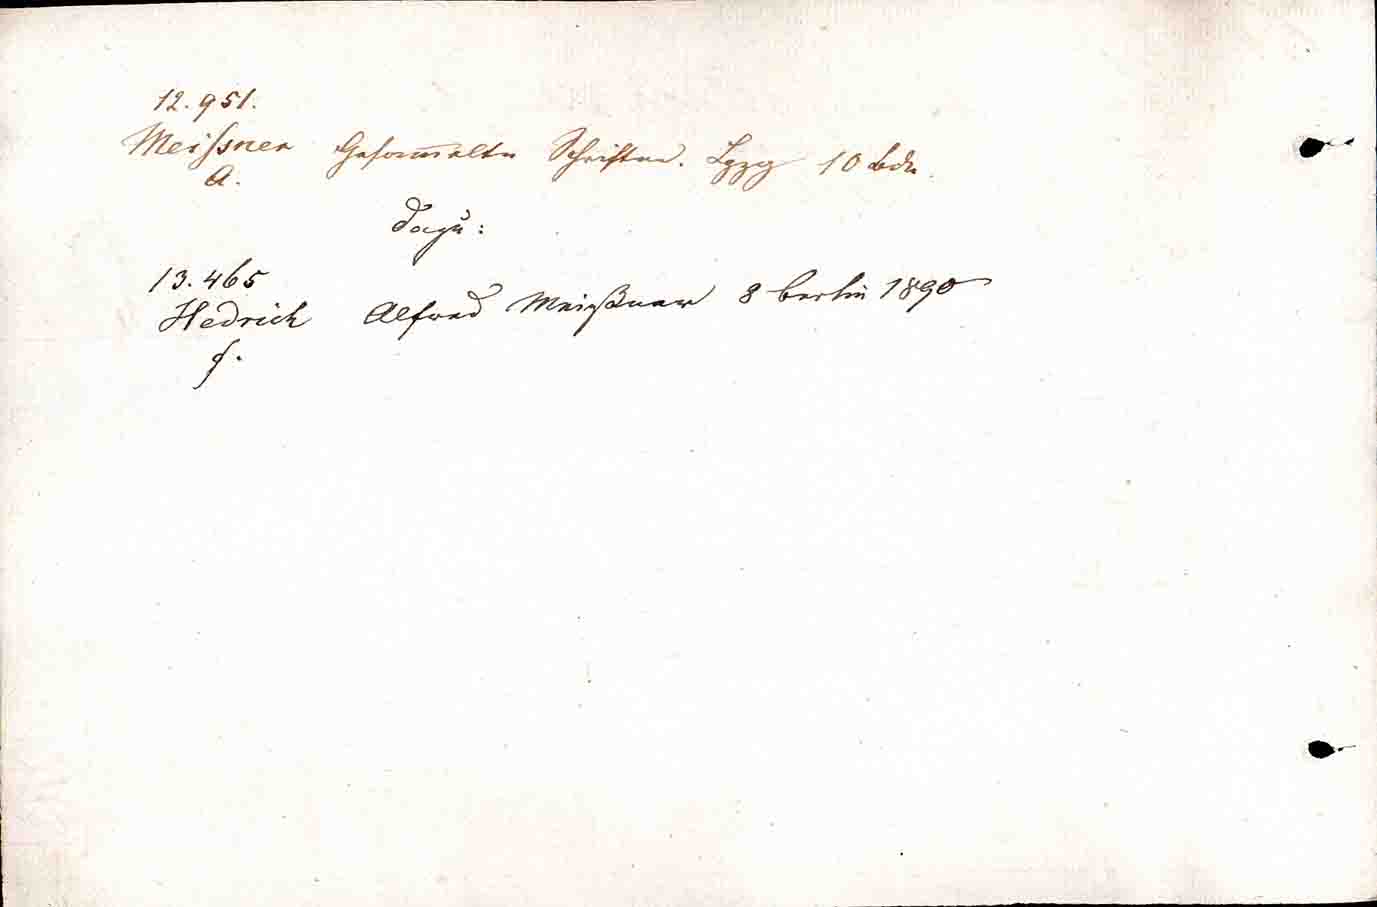 12.951.
Meissner Gesammelte Schriften. Lpzg 10 bde.
A.
Dazu:
13.465
Hedrich Alfred Meißner 8 Berlin 1890
f.